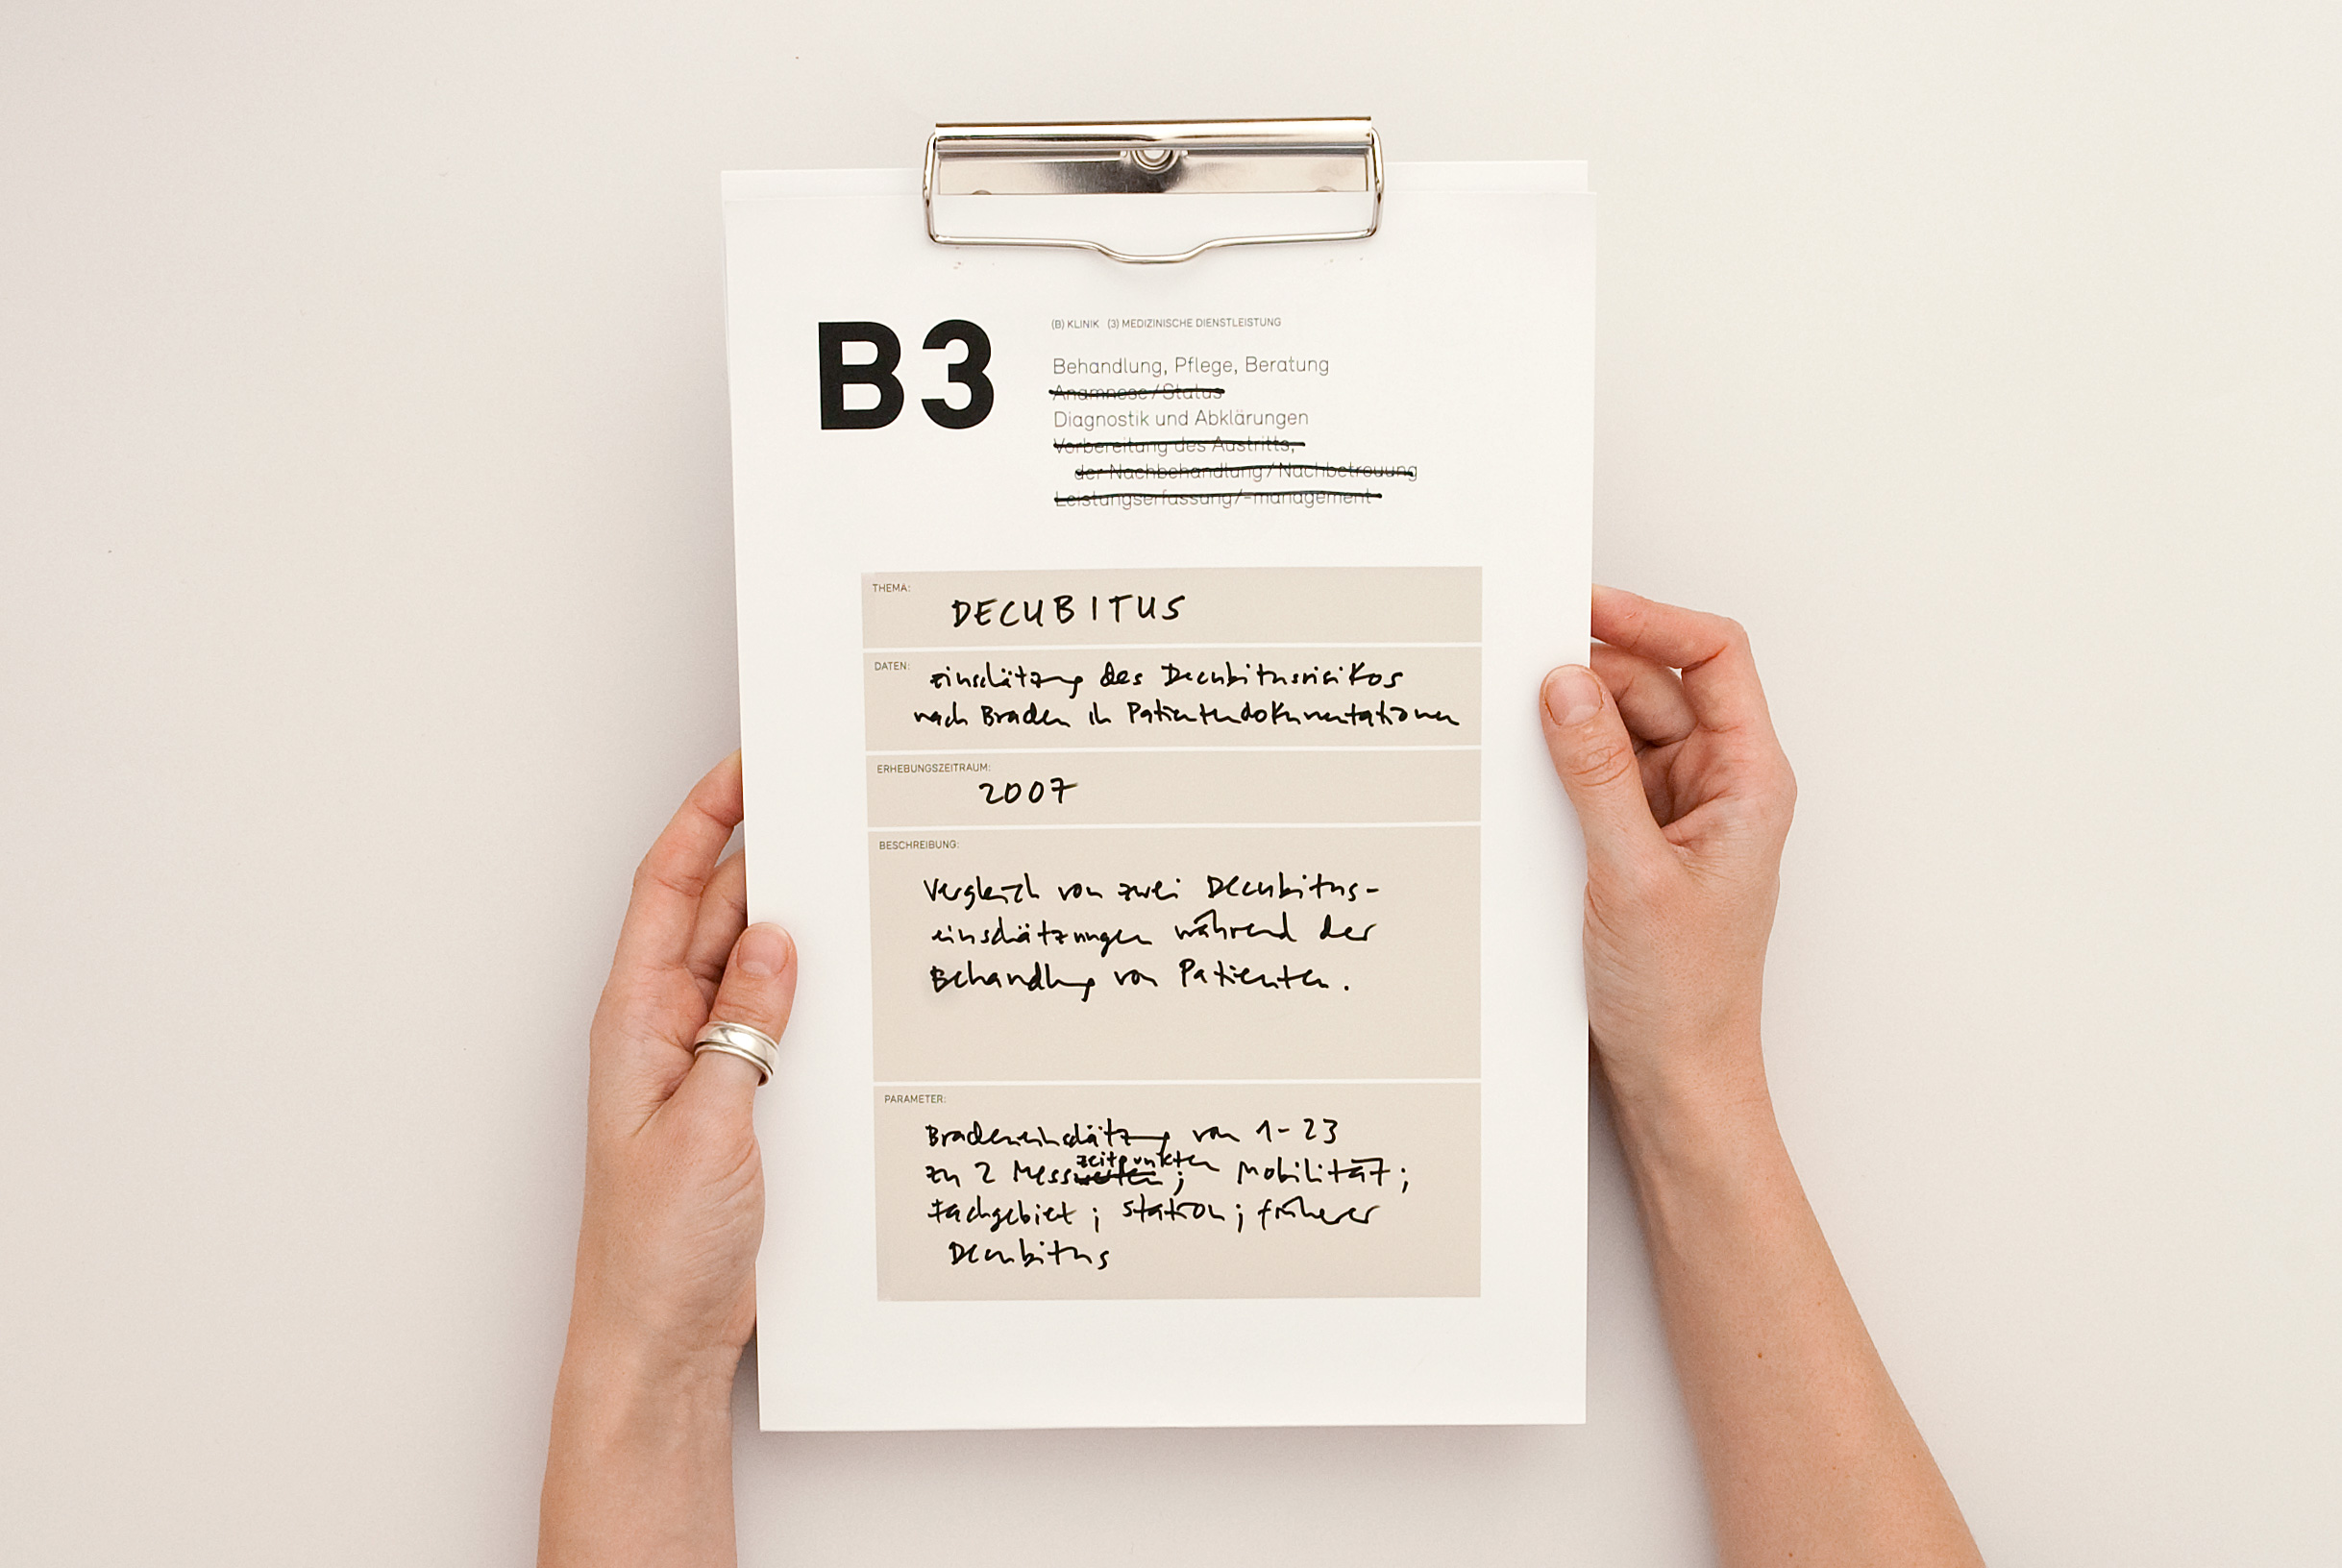 B3
(B) KLINIK (3) MEDIZINISCHE DIENSTLEISTUNG
Behandlung, Pflege, Beratung
Anamnese/Status
Diagnostik und Abklärungen
Vorbereitung des Austritts,
der Nachbehandlung/Nachbetreuung
Leistungserfassung/-management
THEMA:
DECUBITUS
DATEN:
Einschätzung des Decubitusrisikos
nach Braden in Patientendokumentationen
ERHEBUNGSZEITRAUM:
2007
BESCHREIBUNG:
Vergleich von zwei Decubitus-
einschätzungen während der
Behandlung von Patienten.
PARAMETER:
Bradeneinschätzung von 1-23
zeitpunkten
zu 2 Messwerten; Mobilität;
Fachgebiet; Station; früherer
Decubitus